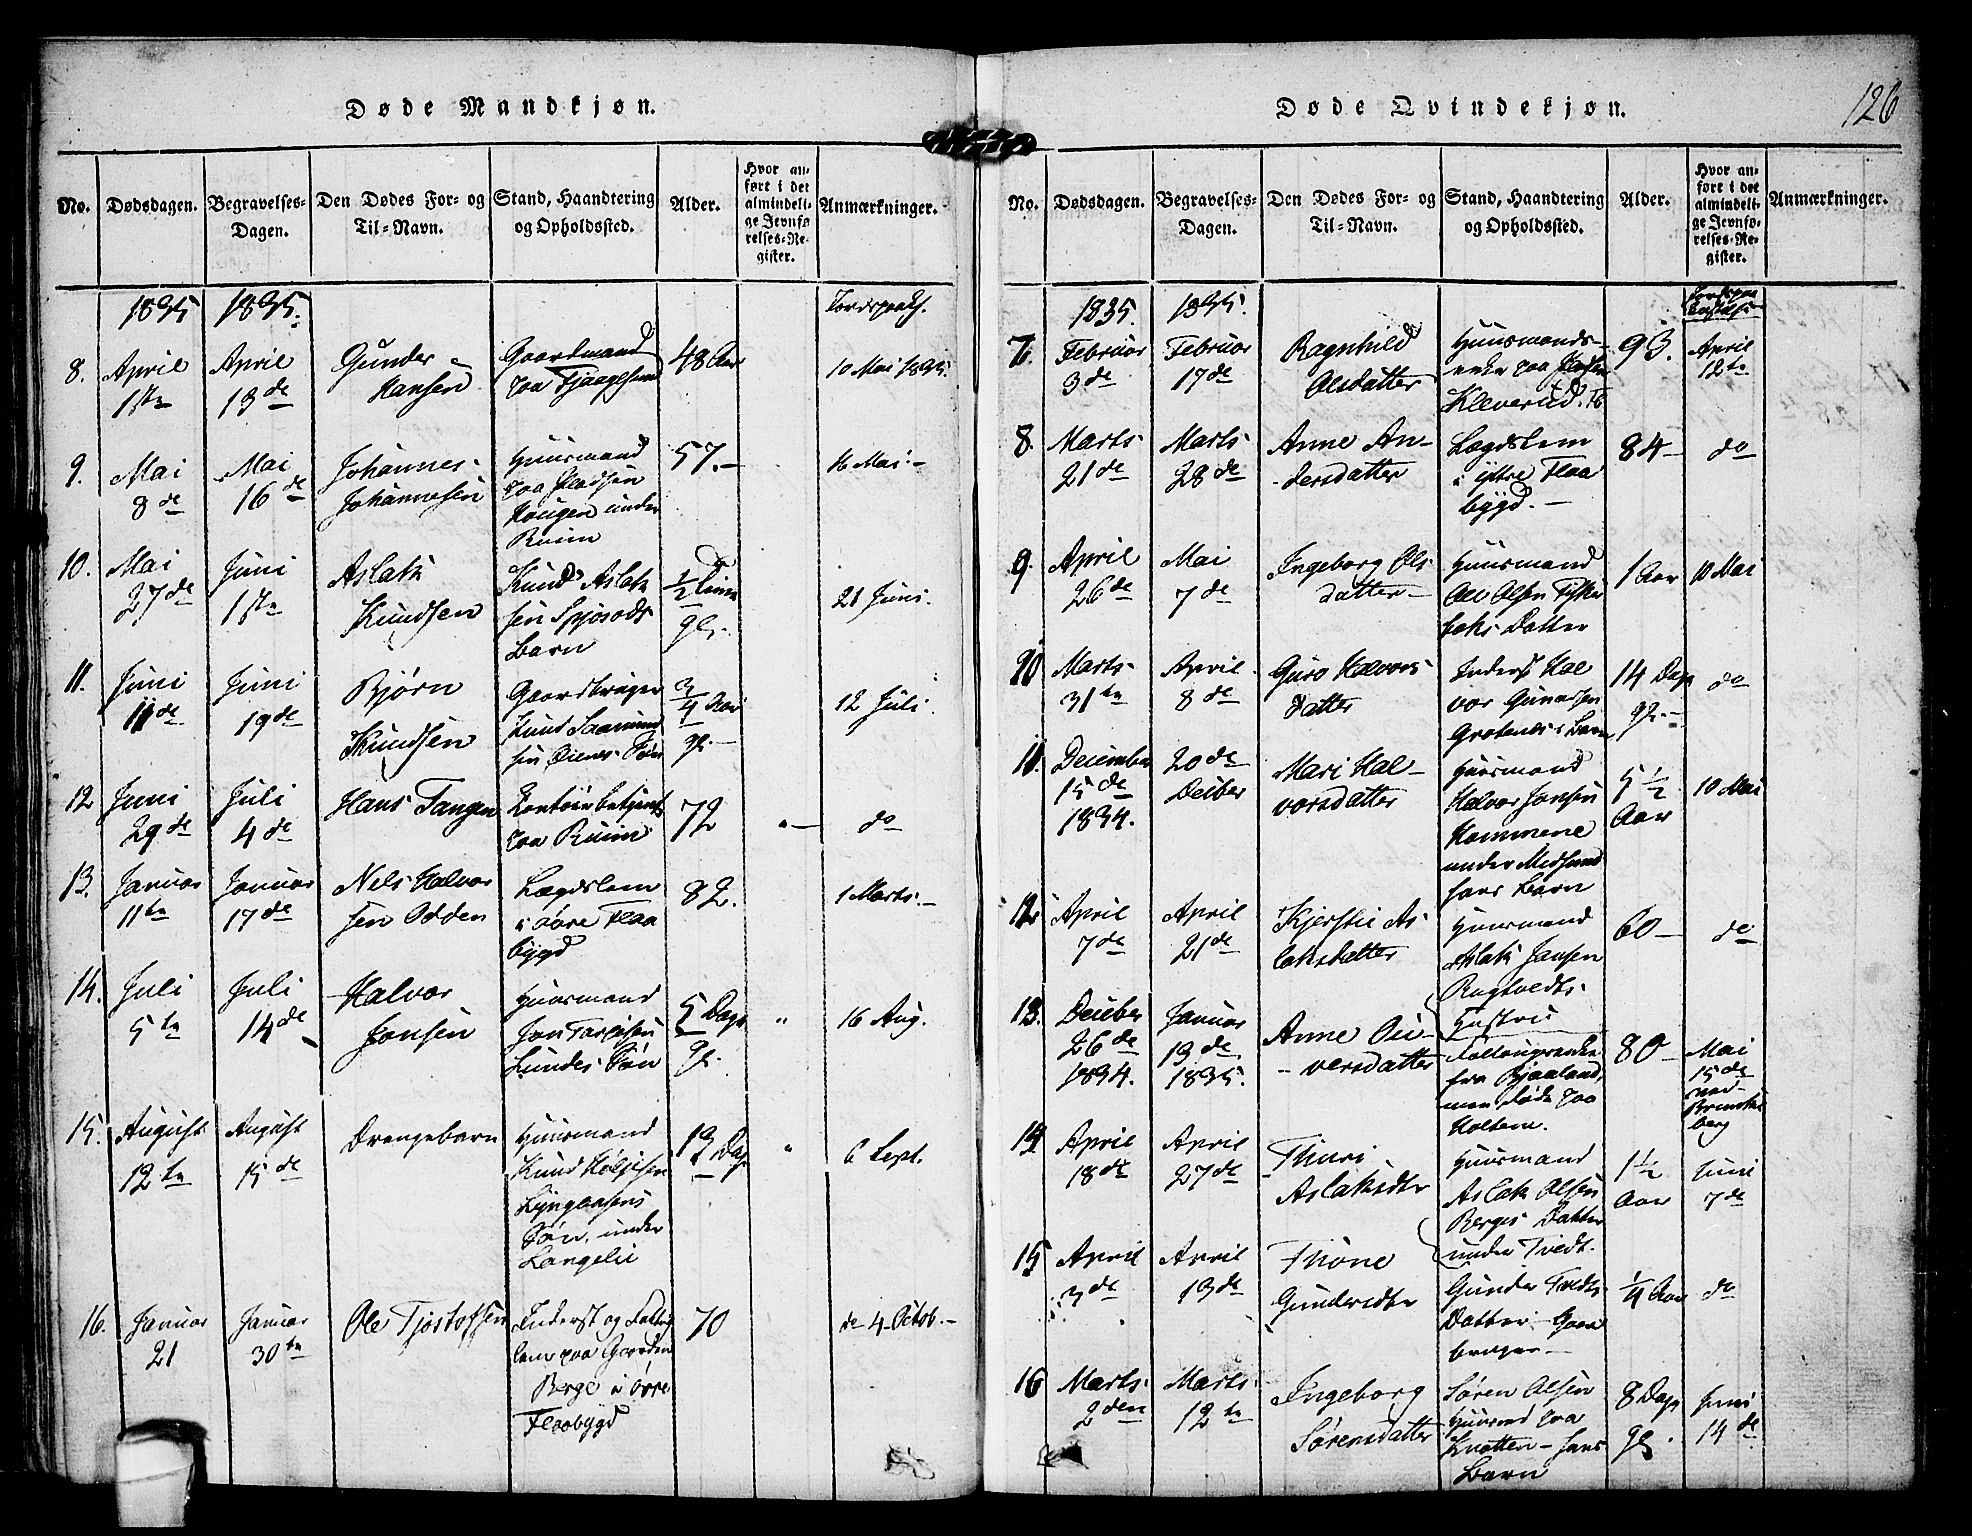 Døde Mandkjøn.
No.
Dødsdagen.
Begravelses-
Dagen.
Den Dødes For- og
Til-Navn.
Stand, Haandtering
og Opholdssted.
Alder.
Hvor an-
ført i det
almindeli-
ge Jevnfø-
relses-Re-
gister.
Anmærkninger.
1835 1835.
8. April 1ste
April 13de
Gunder
Hansen
Gaardmand
paa
48 Aar
10 Mai 1835.
9. Mai 8de
Mai 16de
Johannes
Johannesen
Huusmand
paa
Haugen under
57.
16 Mai.
10. Mai 27de
Juni 1ste
Aslak
Knudsen
Knud Aslak
sen
Barn
1/2 Time
gl.
21 Juni.
11. Juni 11de
Juni 19de
Bjørn
Knudsen
Gaardbruger
Knud
Søn
3/4 Aar
gl.
12 Juli.
12 Juni 29de
Juli 4de
Hans Tangen
paa
72
"
do
13. Januar 11te
Januar 17de
Nels Halvor
sen Odden
Lægdslem
i øvre Flaa
bygd
82.
1 Marts.
14. Juli 5te
Juli 14de
Halvor
Jonsen
Huusmand
Jon
Lundes Søn
5 Dage
gl.
"
16 Aug.
15. August 12te
August 15de
Drengebarn
Huusmand
Knud
Søn, under
Langelie
13 Dage
"
6 Sept.
16. Januar 21
Januar 30te
Ole Tjostolfsen
Inderst og
lem paa Gaarden
Berge i øvre
Flaabygd
70
de 4 Octob.
Døde Qvindekjøn.
126
No.
Dødsdagen.
Begravelses-
Dagen.
Den Dødes For- og
Til-Navn.
Stand, Haandtering
og Opholdssted.
Alder.
Hvor an-
ført i det
almindeli-
ge Jevnfø-
relses-Re-
gister.
Anmærkninger.
1835. 1835.
7. Februar 3de
Februar 17de
Ragnhild
Olsdatter
Huusmands-
enke paa
Kleverud.
93.
April
12te
8. Marts 21de
Marts 28de
Anne An-
dersdatter
Lægdslem
i ytre Flaa
bygd.
84
do
9. April 26de
Mai 7de
Ingeborg Ols
datter
Huusmand
Ole Olsen
Datter
1 Aar
10 Mai
10 Marts 31te
April 8de
Guro Halvors
datter
Inderst Hal
vor
Barn
14 Dage
gl.
do
11. December
15de
1834.
20de
Deciber
Mari Hal-
vorsdatter
Huusmand
Halvor Jonsen
under
hans Barn
5 1/2
Aar
10 Mai
12 April 7de
April 21de
Kjerstie As
laksdatter
Huusmand
Aslak Jansen
Hustrue
60
do
13. Deciber
26de
1834.
Januar
13de
1835.
Anne
versdatter
fra Bjaaland,
men døde paa
Holtem.
80
Mai
15de
ved
berg
14 April 18de
April 27de
Thuri
Aslaksdtr
Huusmand
Aslak Olsen
Berges Datter
under Tvedt.
1 1/2
Aar
Juni
7de
15 April 3de
April 13de
Thone
Gundersdtr
Gunder Tvedts
Datter Gaar
bruger
1/4 Aar
do
16 Marts 2den
Marts 12te
Ingeborg
Sørensdatter
Søren Olsen
paa
Knatten hans
Barn
8 Dage
gl.
Juni
14de